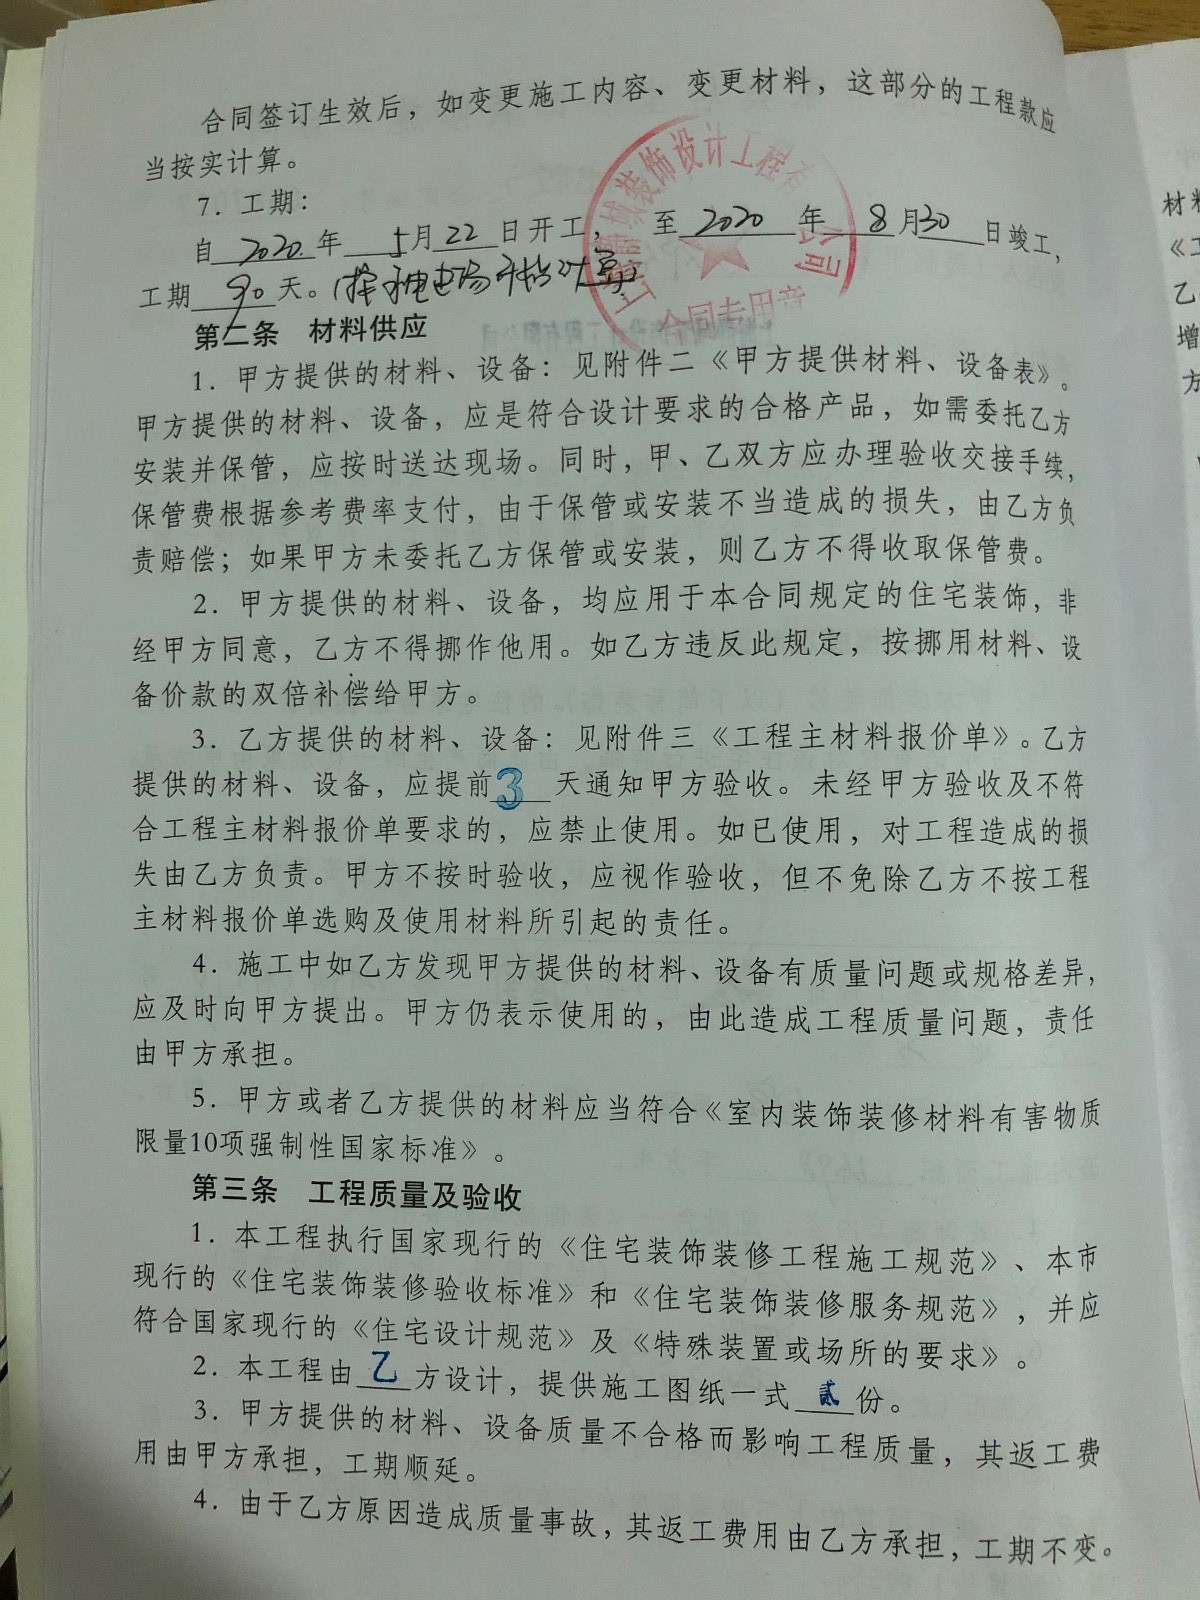 合同签订生效后，如变更施工内容、变更材料，这部分的工程款应
当按实计算。
7．工期：
自 2020 年 5 月 22 日开工，至 2020 年 8 月 30 日竣工，
工期 90 天。
装饰设计工程有 公司
合同专用章
第二条 材料供应
1．甲方提供的材料、设备：见附件二《甲方提供材料、设备表》。
甲方提供的材料、设备，应是符合设计要求的合格产品，如需委托乙方
安装并保管，应按时送达现场。同时，甲、乙双方应办理验收交接手续，
保管费根据参考费率支付，由于保管或安装不当造成的损失，由乙方负
责赔偿；如果甲方未委托乙方保管或安装，则乙方不得收取保管费。
2．甲方提供的材料、设备，均应用于本合同规定的住宅装饰，非
经甲方同意，乙方不得挪作他用。如乙方违反此规定，按挪用材料、设
备价款的双倍补偿给甲方。
3．乙方提供的材料、设备：见附件三《工程主材料报价单》。乙方
提供的材料、设备，应提前 3 天通知甲方验收。未经甲方验收及不符
合工程主材料报价单要求的，应禁止使用。如已使用，对工程造成的损
失由乙方负责。甲方不按时验收，应视作验收，但不免除乙方不按工程
主材料报价单选购及使用材料所引起的责任。
4．施工中如乙方发现甲方提供的材料、设备有质量问题或规格差异，
应及时向甲方提出。甲方仍表示使用的，由此造成工程质量问题，责任
由甲方承担。
5．甲方或者乙方提供的材料应当符合《室内装饰装修材料有害物质
限量10项强制性国家标准》。
第三条 工程质量及验收
1．本工程执行国家现行的《住宅装饰装修工程施工规范》、本市
现行的《住宅装饰装修验收标准》和《住宅装饰装修服务规范》，并应
符合国家现行的《住宅设计规范》及《特殊装置或场所的要求》。
2．本工程由 乙 方设计，提供施工图纸一式 贰 份。
3．甲方提供的材料、设备质量不合格而影响工程质量，其返工费
用由甲方承担，工期顺延。
4．由于乙方原因造成质量事故，其返工费用由乙方承担，工期不变。